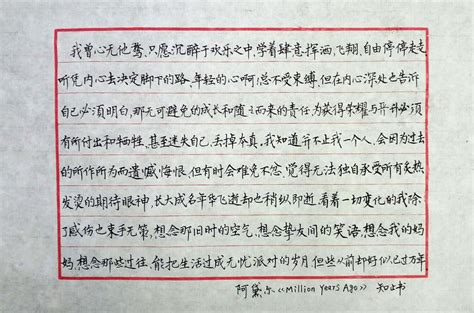 我曾心无他鹜,只愿沉醉于欢乐之中,学着肆意挥洒,飞翔,自由停停走走
听凭内心去决定脚下的路,年轻的心啊!总不受束缚,但在内心深处也告诉
自己必须明白,那无可避免的成长和随之而来的责任为获得荣耀与升升必须
有所付出和牺牲,甚至迷失自己,丢掉本真,我知道并不止我一个人,会因为过去
的所作所为而遗憾悔恨,但有时会难免不忿,觉得无法独自承受所有炙热
发烫的期待眼神,长大成名年华飞逝却也稍纵即逝,看着一切变化的我除
了感伤也束手无策,想念那旧时的空气,想念挚友间的笑语,想念我的妈
妈,想念那些过往,能把生活过成无忧派对的岁月,但些从前却好似已过万年
阿黛尔《Million Years Ago》 书